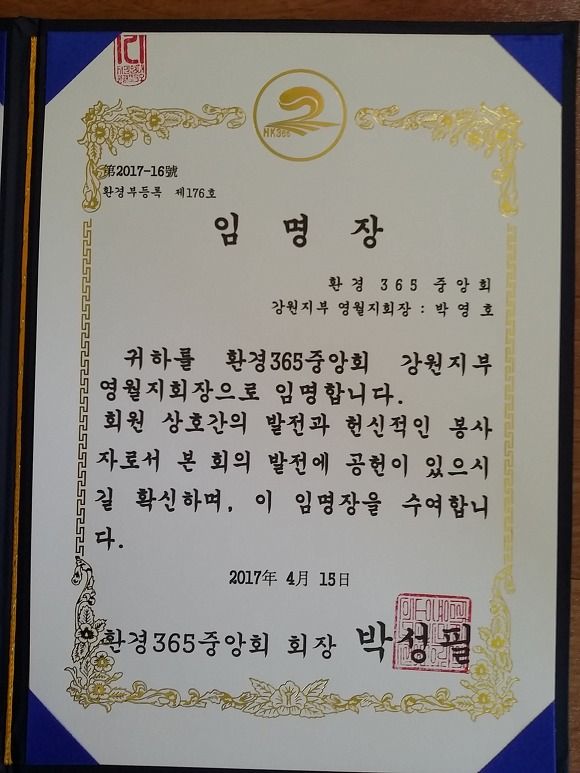 HK365
第2017-16號
환경부등록 제176호
임 명 장
환 경 3 6 5 중 앙 회
강원지부 영월지회장 : 박 영 호
귀하를 환경365중앙회 강원지부
영월지회장으로 임명합니다.
회원 상호간의 발전과 헌신적인 봉사
자로서 본 회의 발전에 공헌이 있으시
길 확신하며, 이 임명장을 수여합니
다.
2017年 4月 15日
환경365중앙회 회장 박성필